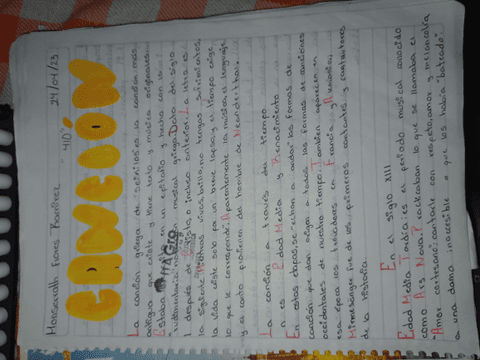 Monserrath Flores Ramirez "410" 24/04/23
CANCIÓN
La canción griega de Seikilos es la canción más
antigua que existe y tiene texto y música originales.
Estaba en un epitafio y hecha con la
musical griega. Data del siglo
después de Cristo, o incluso anterior. La letra es
la siguiente: Mientras vivas, brilla, no tengas sufrimientos,
la vida existe solo por un breve lapso y el tiempo exige
lo que le corresponde. Aparentemente la musica, el lenguaje
y el canto provienen del hombre de Neanderthal.
La canción a través del tiempo
en es Edad Media y Renacimiento
En estas etapas, se echan a andar las formas de
canción que dan origen a todas las formas de canciones
occidentales de nuestro tiempo. Tambien aparecen en
esa época los trovadores en Francia y Alemania,
Minnesänger, que son de los primeros cantantes y cantautores
de la historia
En el siglo XIII
Edad Media Tardia: es el periodo musical conocido
como Ars Nova. Cantaban lo que se llamaba el
"Amor cortesano" cantarle con respeto, amor y melancolía
a una dama inaccesible o que los había "bateado".